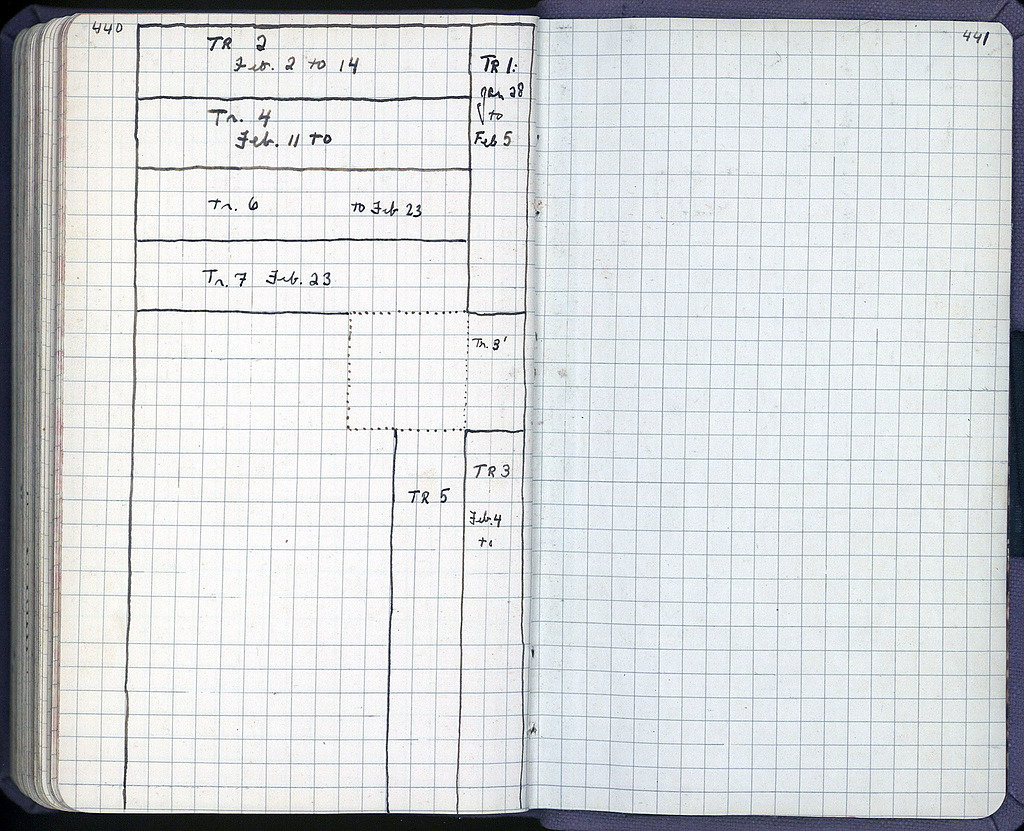 440
TR 2
Feb. 2 to 14
TR 1:
Jan 28
to
Feb 5
Tr. 4
Feb. 11 to
Tr. 6 to Feb 23
Tr. 7 Feb. 23
Tr. 3'
TR 3
Feb. 4
to
TR 5
441